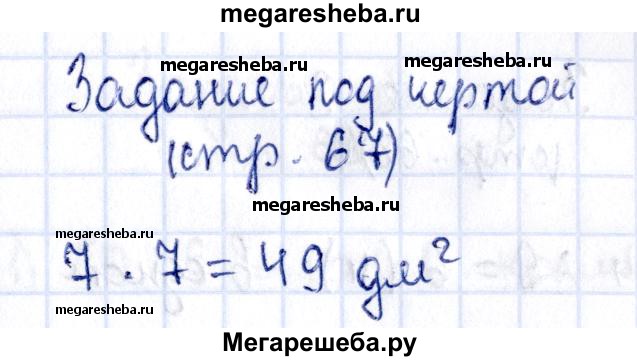 megaresheba.ru
megaresheba.ru
megaresheba.ru
Задание под чертой
(стр. 67)
megaresheba.ru
megaresheba.ru
7 · 7 = 49 дм²
megaresheba.ru
Мегарешеба.ру